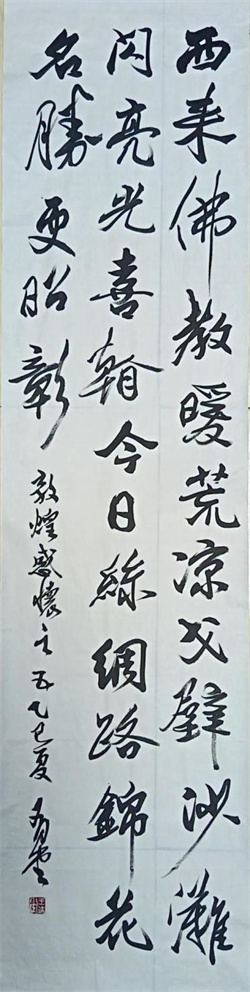 西来佛教暖荒凉戈壁沙滩
闪亮光喜看今日絲绸路錦花
名勝更昭彰
敦煌感懷之五乙巳夏